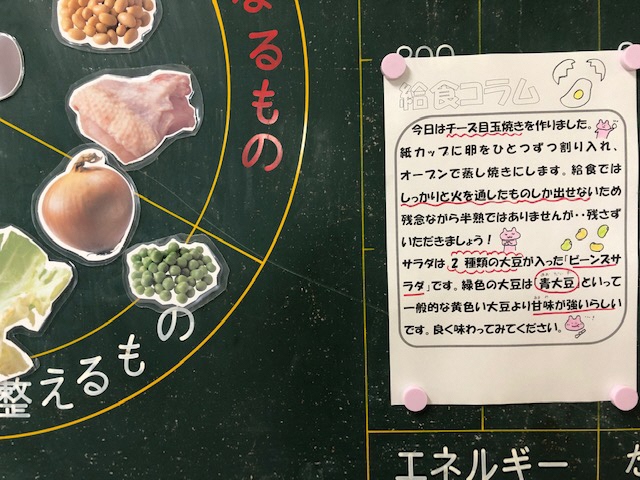 なるもの
整えるもの
給食コラム
今日はチーズ目玉焼きを作りました。
紙カップに卵をひとつずつ割り入れ、
オーブンで蒸し焼きにします。給食では
しっかりと火を通したものしか出せないため
残念ながら半熟ではありませんが‥残さず
いただきましょう！
サラダは2種類の大豆が入った「ビーンズサ
ラダ」です。緑色の大豆は青大豆といって
一般的な黄色い大豆より甘味が強いらしい
です。良く味わってみてください。
エネルギー